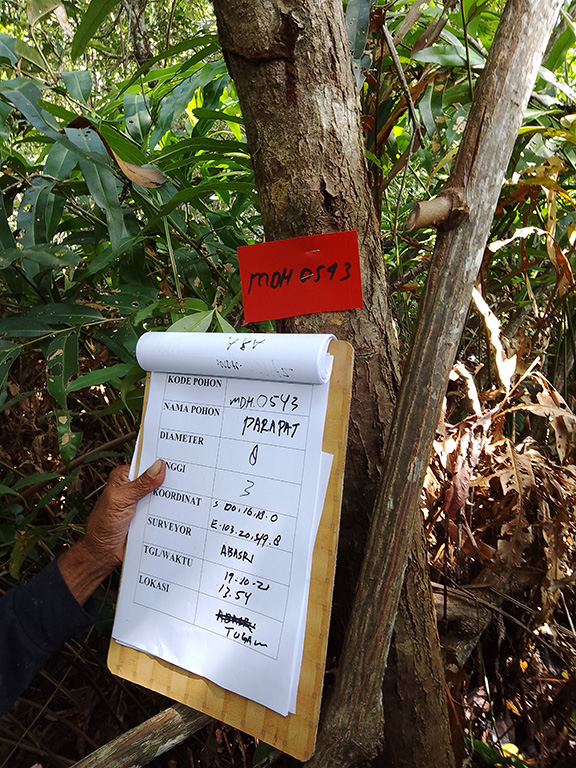 MDH 0543
KODE POHON MDH.0543
NAMA POHON PARAPAT
DIAMETER 8
NGGI 3
KOORDINAT S 00.16.18.0
E.103.20.49.8
SURVEYOR ABASRI
TGL/WAKTU 19-10-21
13.54
LOKASI
TUGAM